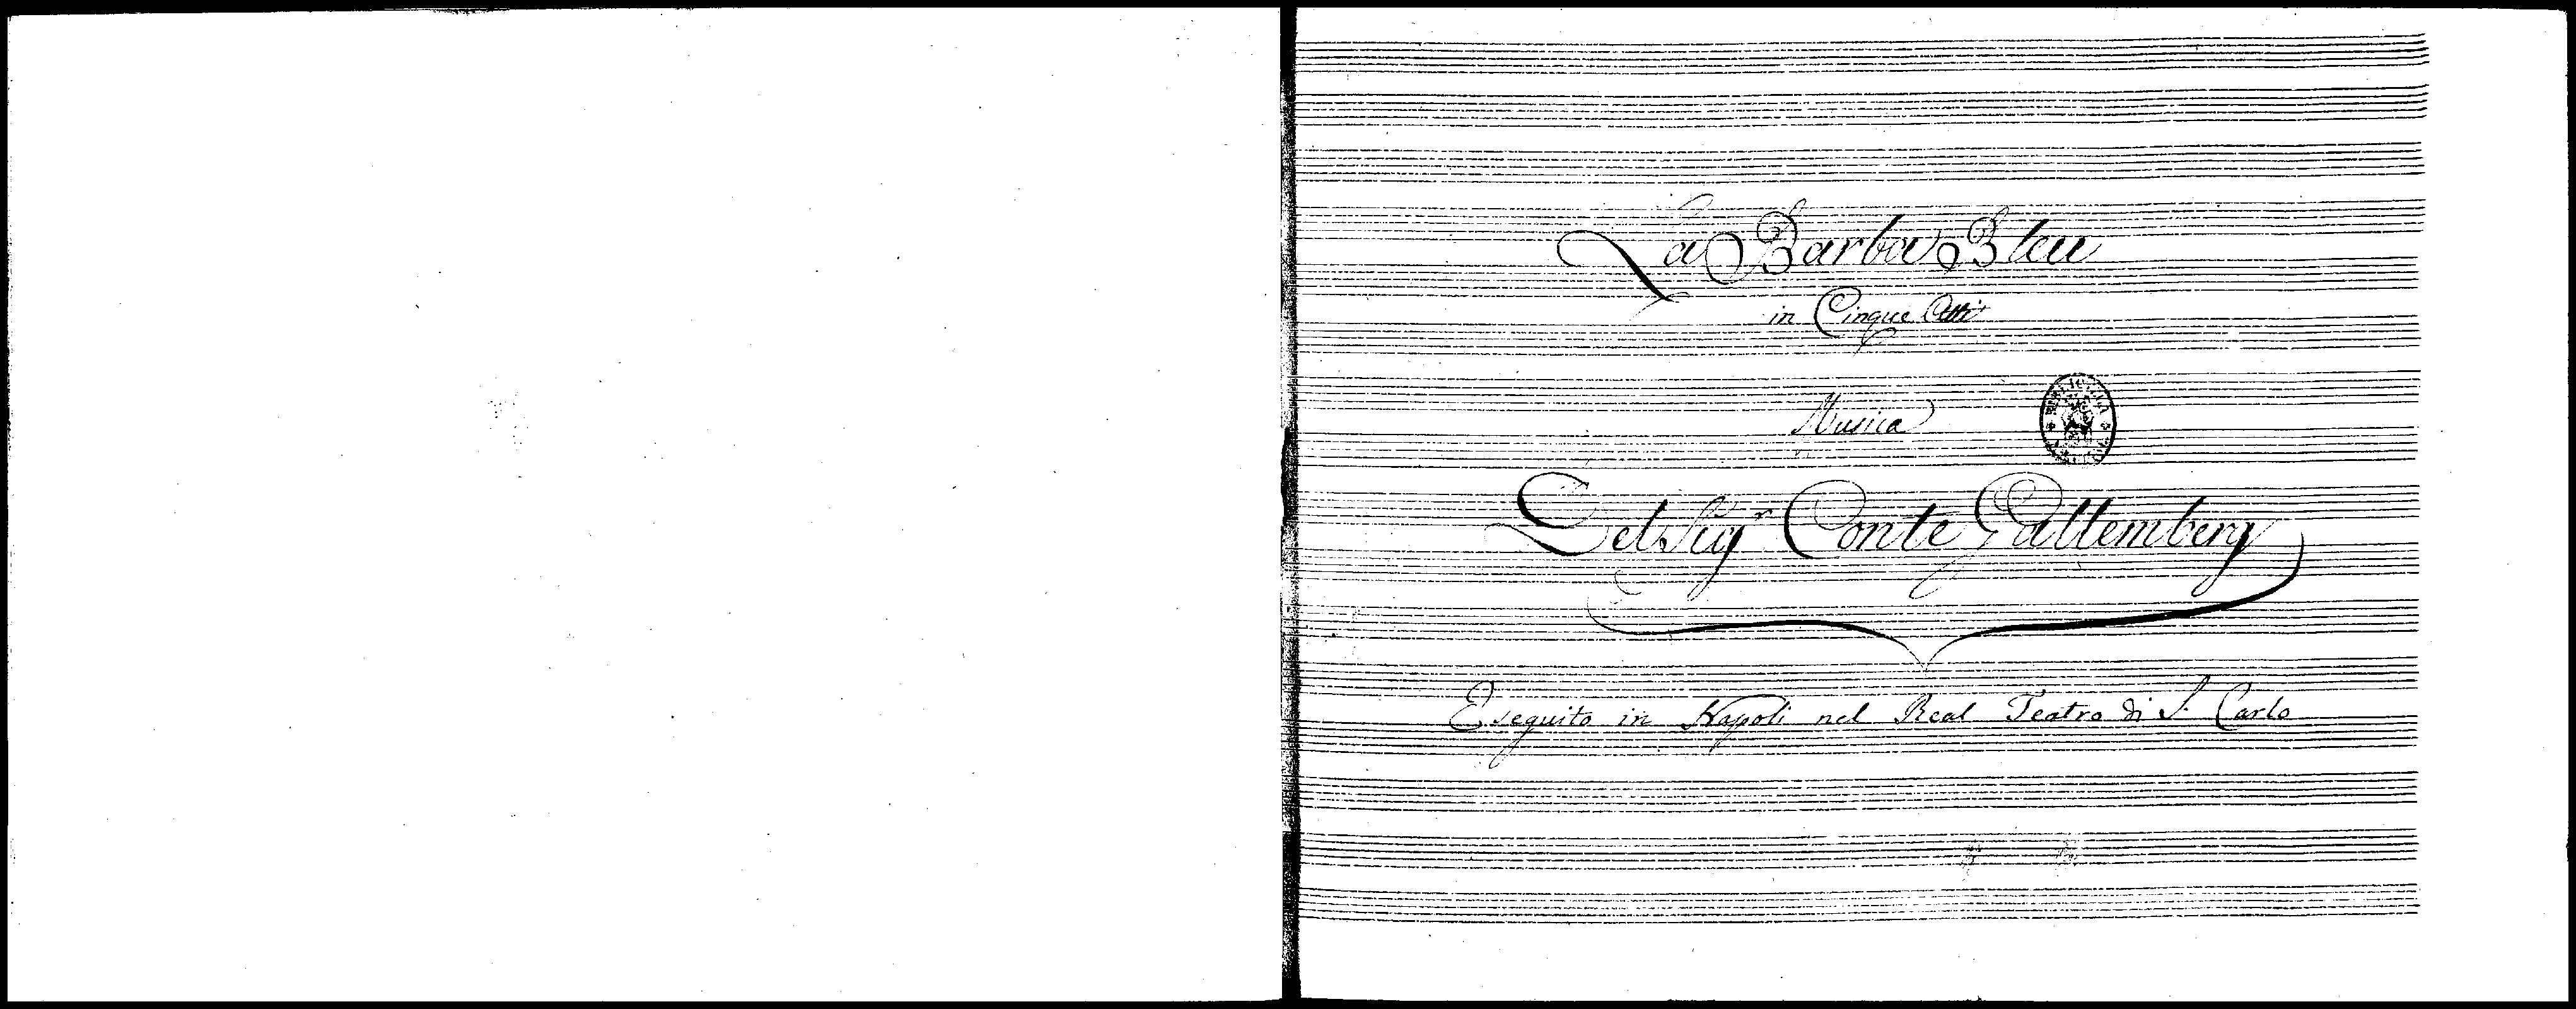 La Barba Bleu
in Cinque Atti
Musica
Del Sigr Conte Gallemberg
Eseguito in Napoli nel Real Teatro di S. Carlo